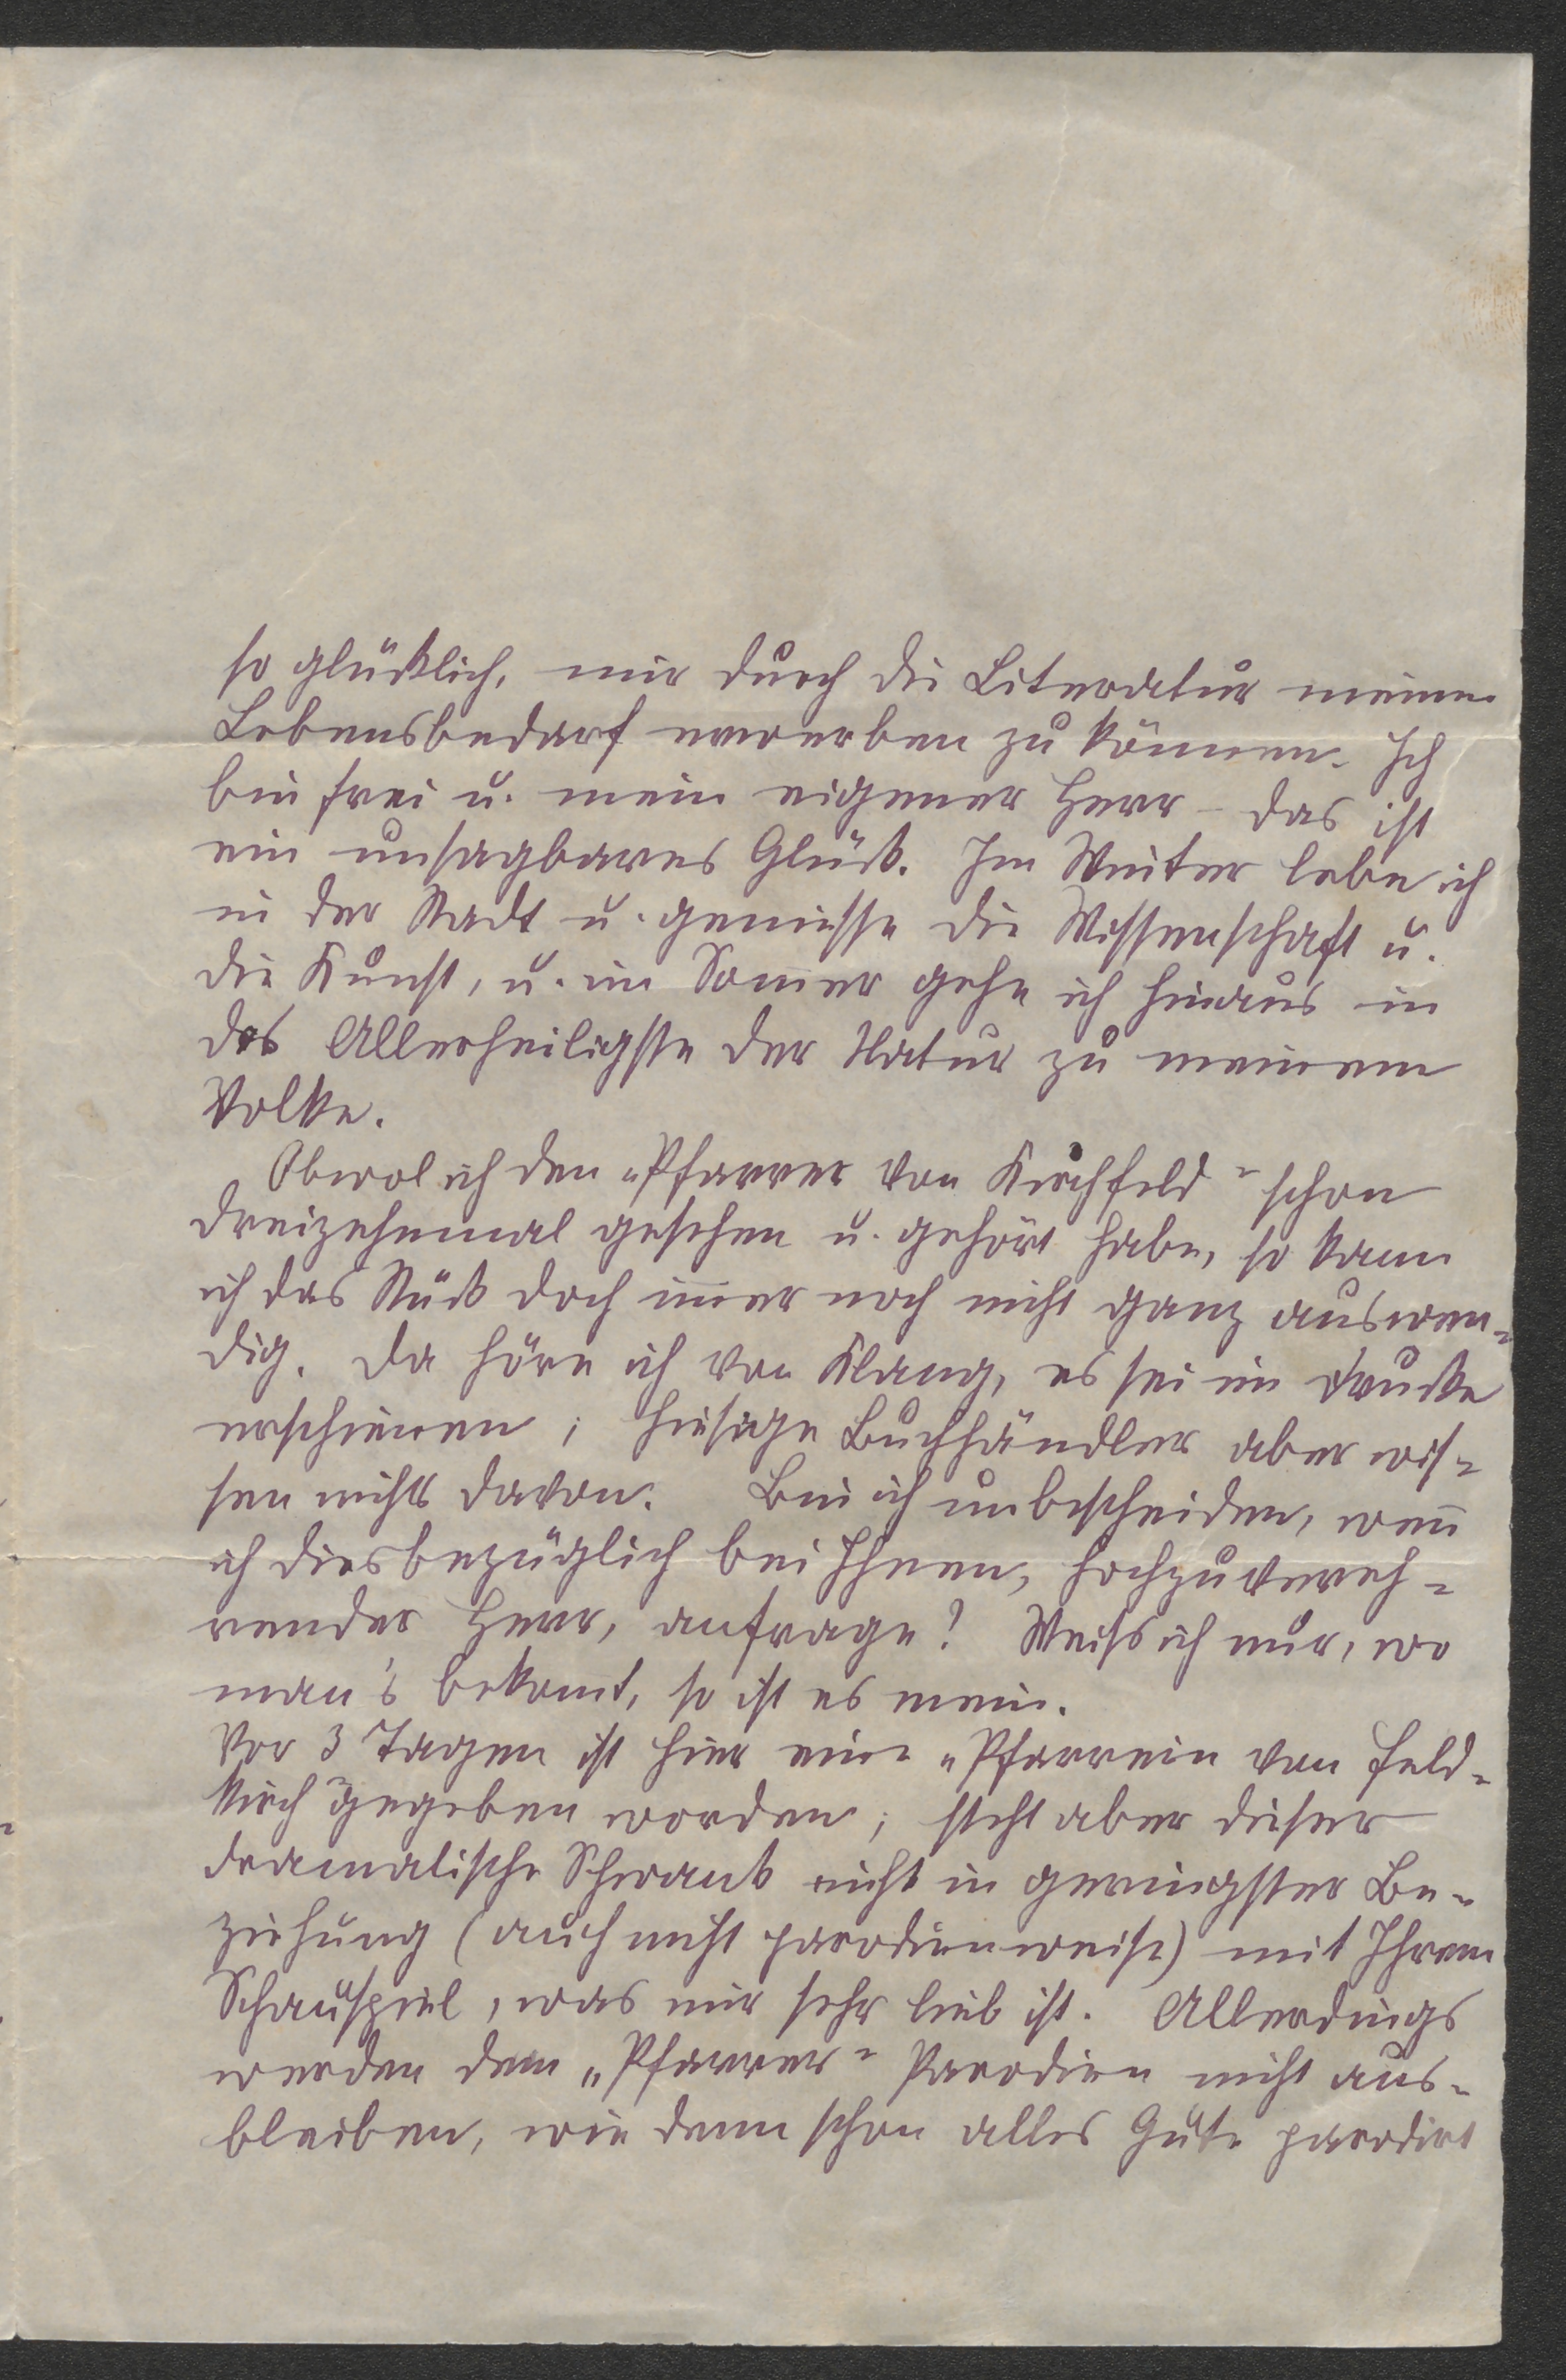 so glücklich, mir durch die Literatur meinen
Lebensbedarf erwerben zu können. Ich
bin frei u. mein eigener Herr – das ist
ein unsagbares Glück. Im Winter lebe ich
in der Stadt u. geniesse die Wissenschaft u.
die Kunst, u. im Som̅er gehe ich hinaus in
das Allerheiligste der Natur zu meinem
Volke.
Obwol ich den „Pfarrer von Kirchfeld“ schon
dreizehnmal gesehen u. gehört habe, so kann
ich das Stück doch im̅er noch nicht ganz auswen-
dig. Da höre ich von Klang, es sei im Drucke
erschienen; hiesige Buchhändler aber wis-
sen nichts davon. Bin ich unbescheiden, wen̅
ich diesbezüglich bei Ihnen, hochzuvereh-
render Herr, anfrage? Weiß ich nur, wo
man's bekom̅t, so ist es mein.
Vor 3 Tagen ist hier eine „Pfarrerin von Feld-
kirch“ gegeben worden; steht aber dieser
dramatische Schwank nicht in geringster Be-
ziehung (auch nicht parodienweise) mit Ihrem
Schauspiel, was mir sehr lieb ist. Allerdings
werden dem „Pfarrer“ Parodien nicht aus-
bleiben, wie denn schon alles Gute parodirt